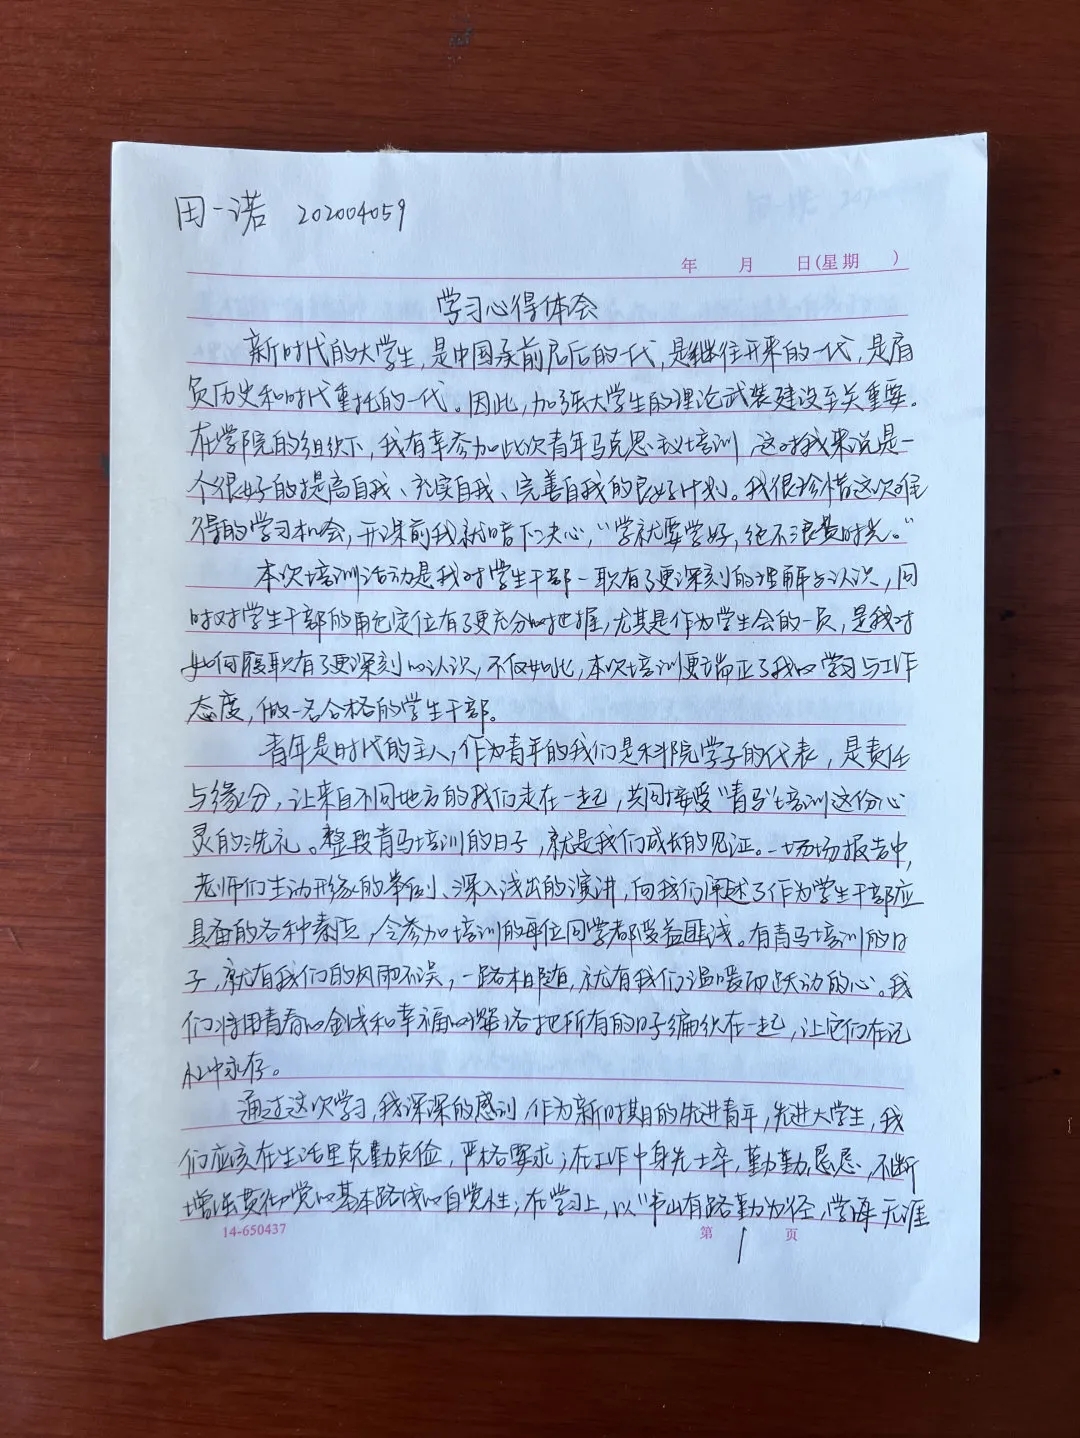 田一诺 202004059
年 月 日(星期 )
学习心得体会
新时代的大学生，是中国承前启后的一代，是继往开来的一代，是肩
负历史和时代重托的一代。因此，加强大学生的理论武装建设至关重要。
在学院的组织下，我有幸参加此次青年马克思主义培训，这对我来说是一
个很好的提高自我、充实自我、完善自我的良好计划。我很珍惜这次难
得的学习机会，开课前我就暗下决心，“学就要学好，绝不浪费时光。”
本次培训活动是我对学生干部一职有了更深刻的理解与认识，同
时对学生干部的角色定位有了更充分的把握，尤其是作为学生会的一员，是我对
如何履职有了更深刻的认识，不仅如此，本次培训更端正了我的学习与工作
态度，做一名合格的学生干部。
青年是时代的主人，作为青年的我们是科院学子的代表，是责任
与缘分，让来自不同地方的我们走在一起，共同接受“青马”培训这份心
灵的洗礼。整段青马培训的日子，就是我们成长的见证。一场场报告中，
老师们生动形象的举例、深入浅出的演讲，向我们阐述了作为学生干部应
具备的各种素质，令参加培训的每位同学都受益匪浅。有青马培训的日
子，就有我们的风雨不误，一路相随，就有我们温暖而跃动的心。我
们将用青春的金线和幸福的璎珞把所有的日子编织在一起，让它们在记
忆中永存。
通过这次学习，我深深的感到，作为新时期的先进青年，先进大学生，我
们应该在生活里克勤克俭，严格要求；在工作中身先士卒，勤勤恳恳，不断
增强贯彻党的基本路线的自觉性；在学习上，以“书山有路勤为径，学海无涯
14-650437
第 1 页